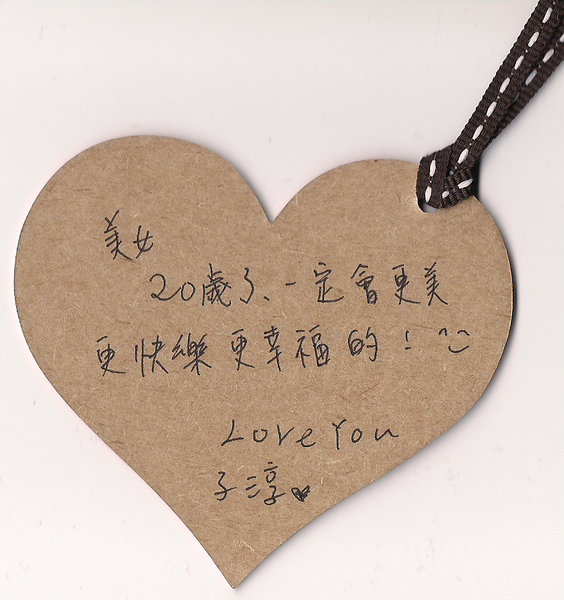 美女
20歲了、一定會更美
更快樂更幸福的！^^
Love You
子淳♥